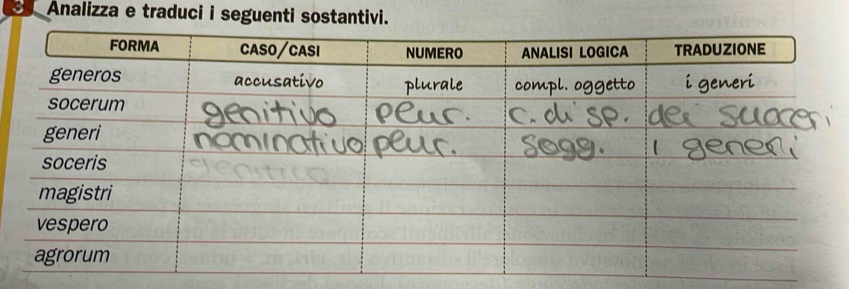 3 Analizza e traduci i seguenti sostantivi.
FORMA CASO/CASI NUMERO ANALISI LOGICA TRADUZIONE
generos accusativo plurale compl. oggetto i generi
socerum genitivo plur. c. di sp. dei suoceri
generi nominativo plur. sogg. i generi
soceris genitico
magistri
vespero
agrorum